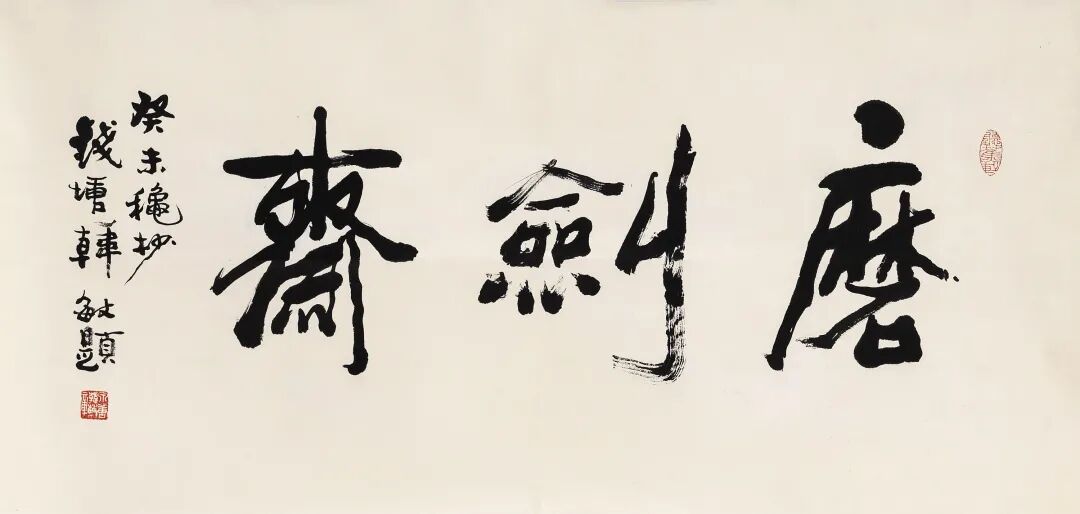 磨劍齋
癸未龝抄
錢塘韓敏題